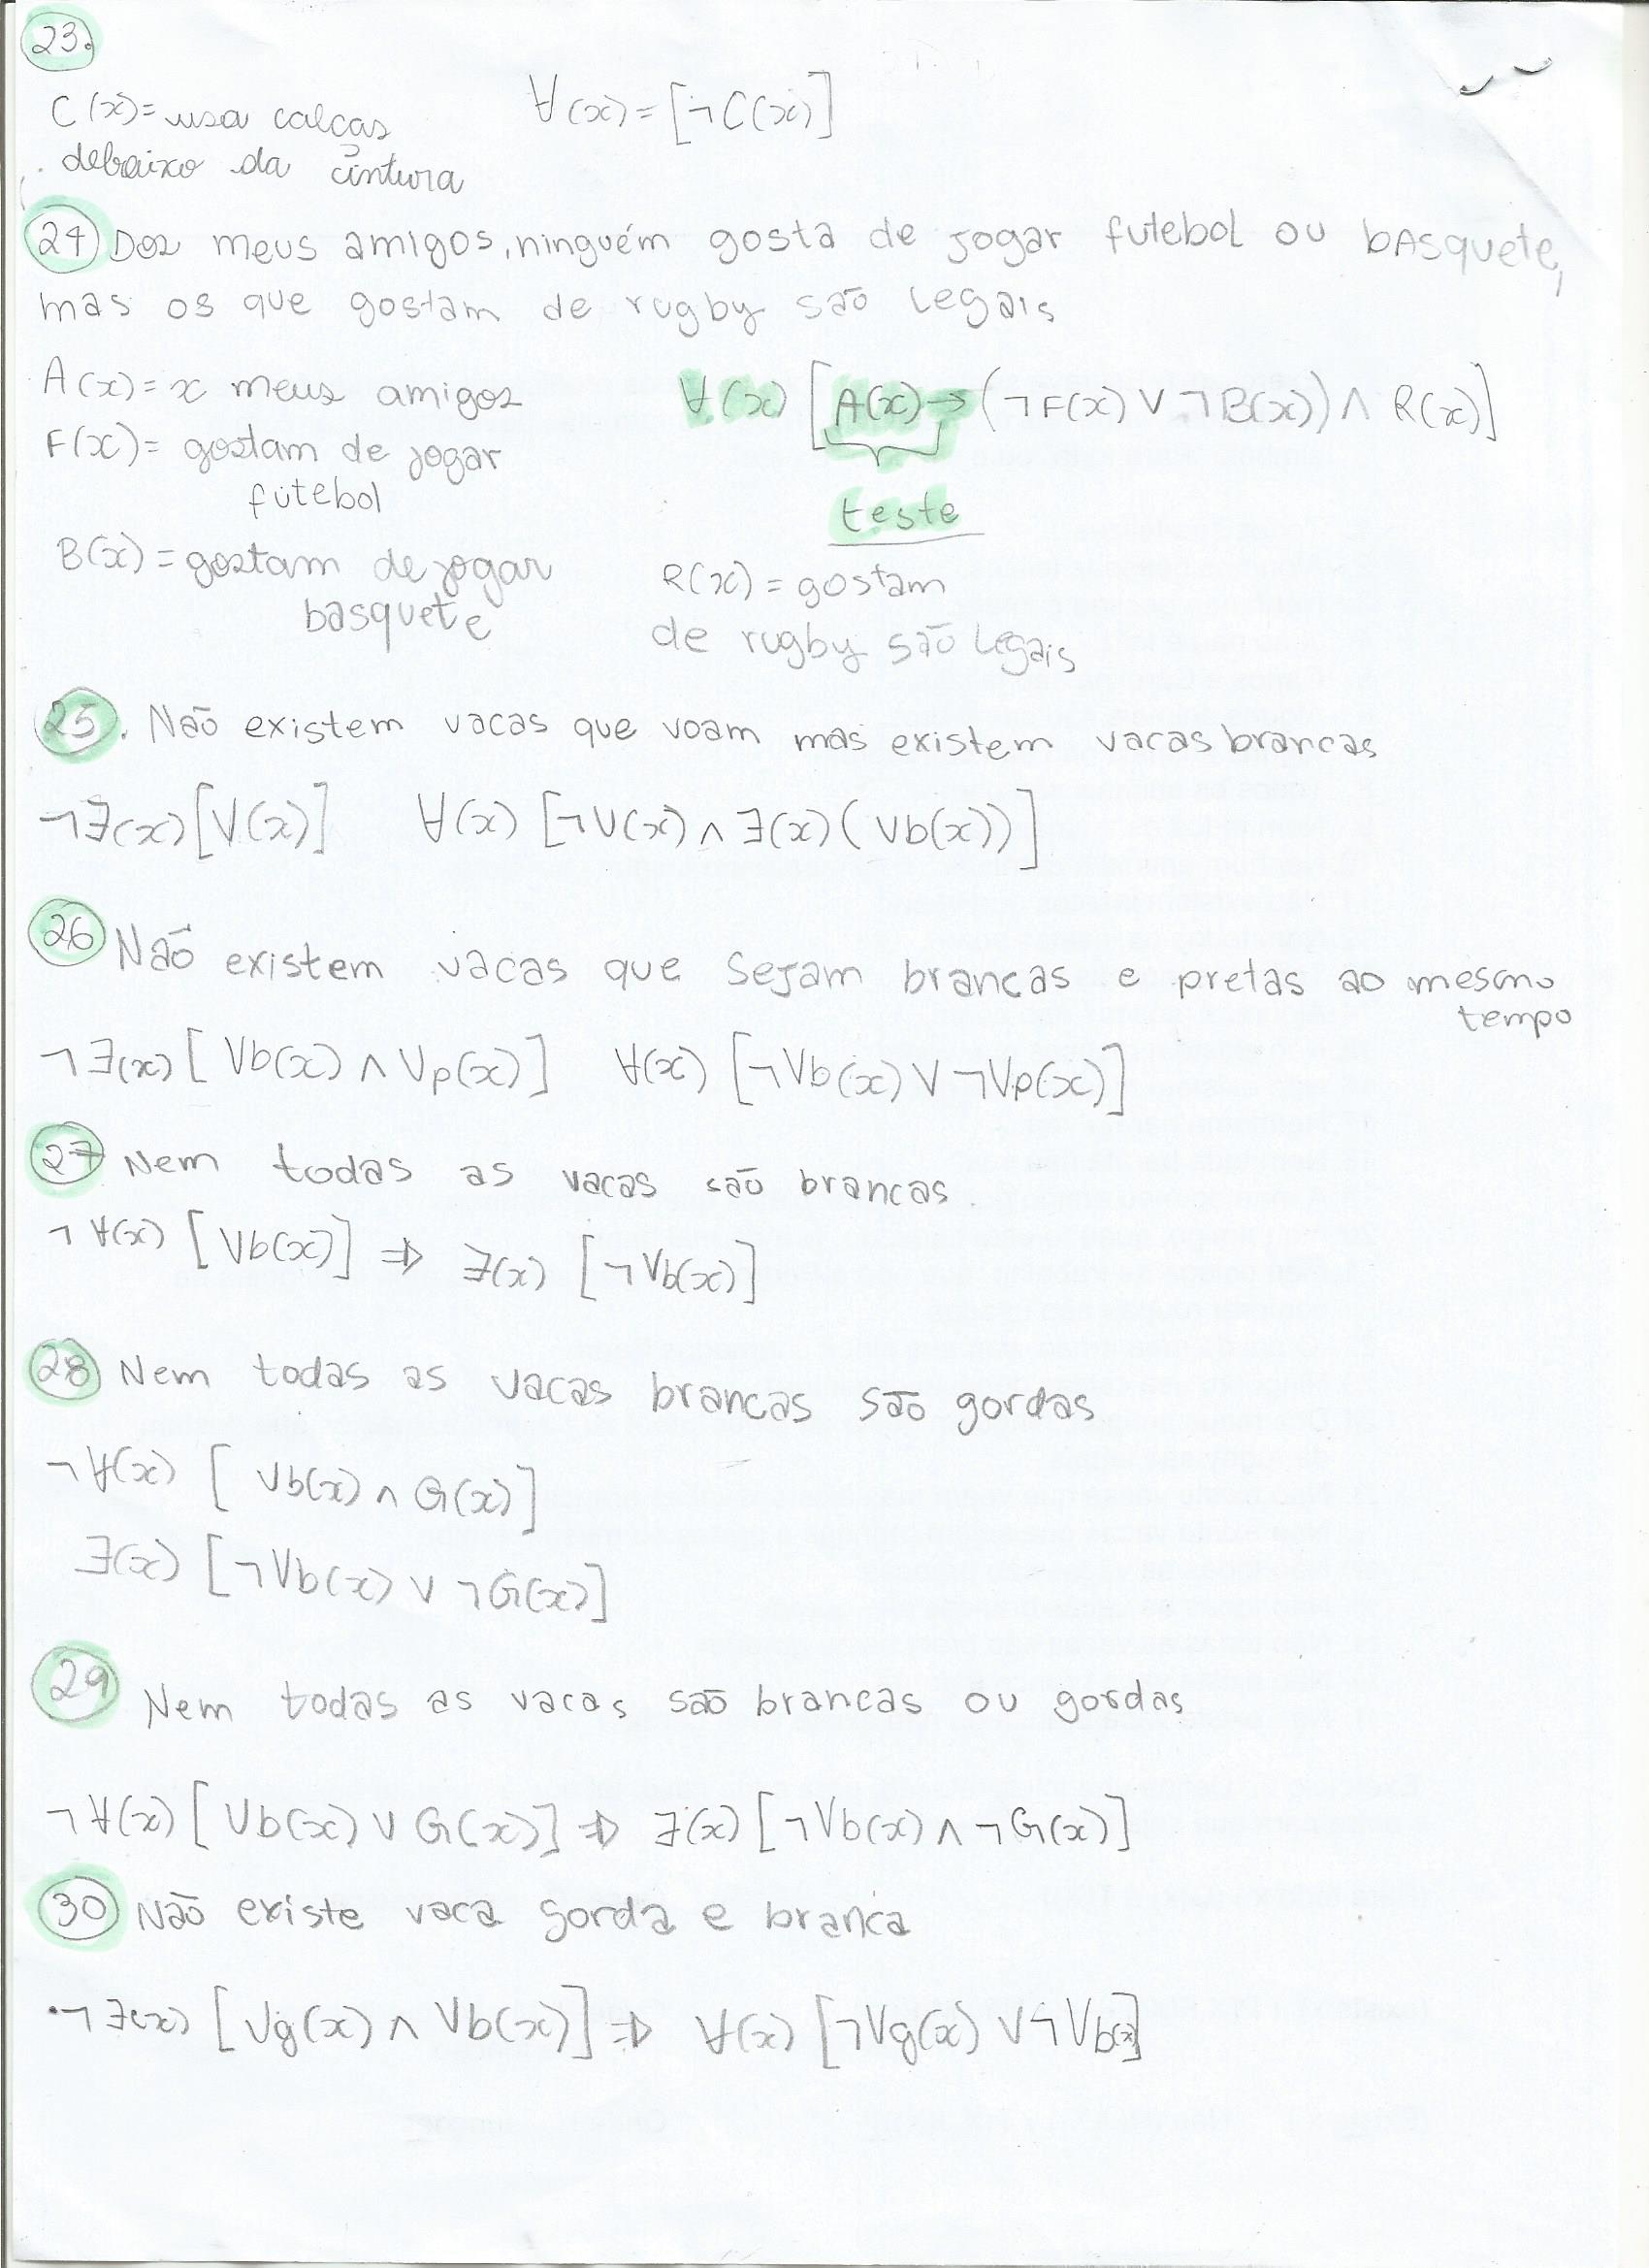 23.
C(x)= usa calças ∀(x)=[¬C(x)]
debaixo da cintura
24 Dos meus amigos, ninguém gosta de jogar futebol ou basquete,
mas os que gostam de rugby são legais
A(x)= x meus amigos ∀(x) [A(x)→(¬F(x) ∨ ¬B(x)) ∧ R(x)]
F(x)= gostam de jogar
futebol
teste
B(x)= gostam de jogar
basquete
R(x)= gostam
de rugby são legais
25. Não existem vacas que voam mas existem vacas brancas
¬∃(x)[V(x)] ∀(x) [¬V(x) ∧ ∃(x)(Vb(x))]
26 Não existem vacas que sejam brancas e pretas ao mesmo
tempo
¬∃(x)[Vb(x) ∧ Vp(x)] ∀(x) [¬Vb(x) ∨ ¬Vp(x)]
27 Nem todas as vacas são brancas.
¬∀(x) [Vb(x)] ⇒ ∃(x) [¬Vb(x)]
28 Nem todas as vacas brancas são gordas
¬∀(x) [Vb(x) ∧ G(x)]
∃(x) [¬Vb(x) ∨ ¬G(x)]
29 Nem todas as vacas são brancas ou gordas
¬∀(x) [Vb(x) ∨ G(x)] ⇒ ∃(x) [¬Vb(x) ∧ ¬G(x)]
30 Não existe vaca gorda e branca
•¬∃(x) [Vg(x) ∧ Vb(x)] ⇒ ∀(x) [¬Vg(x) ∨ ¬Vb(x)]